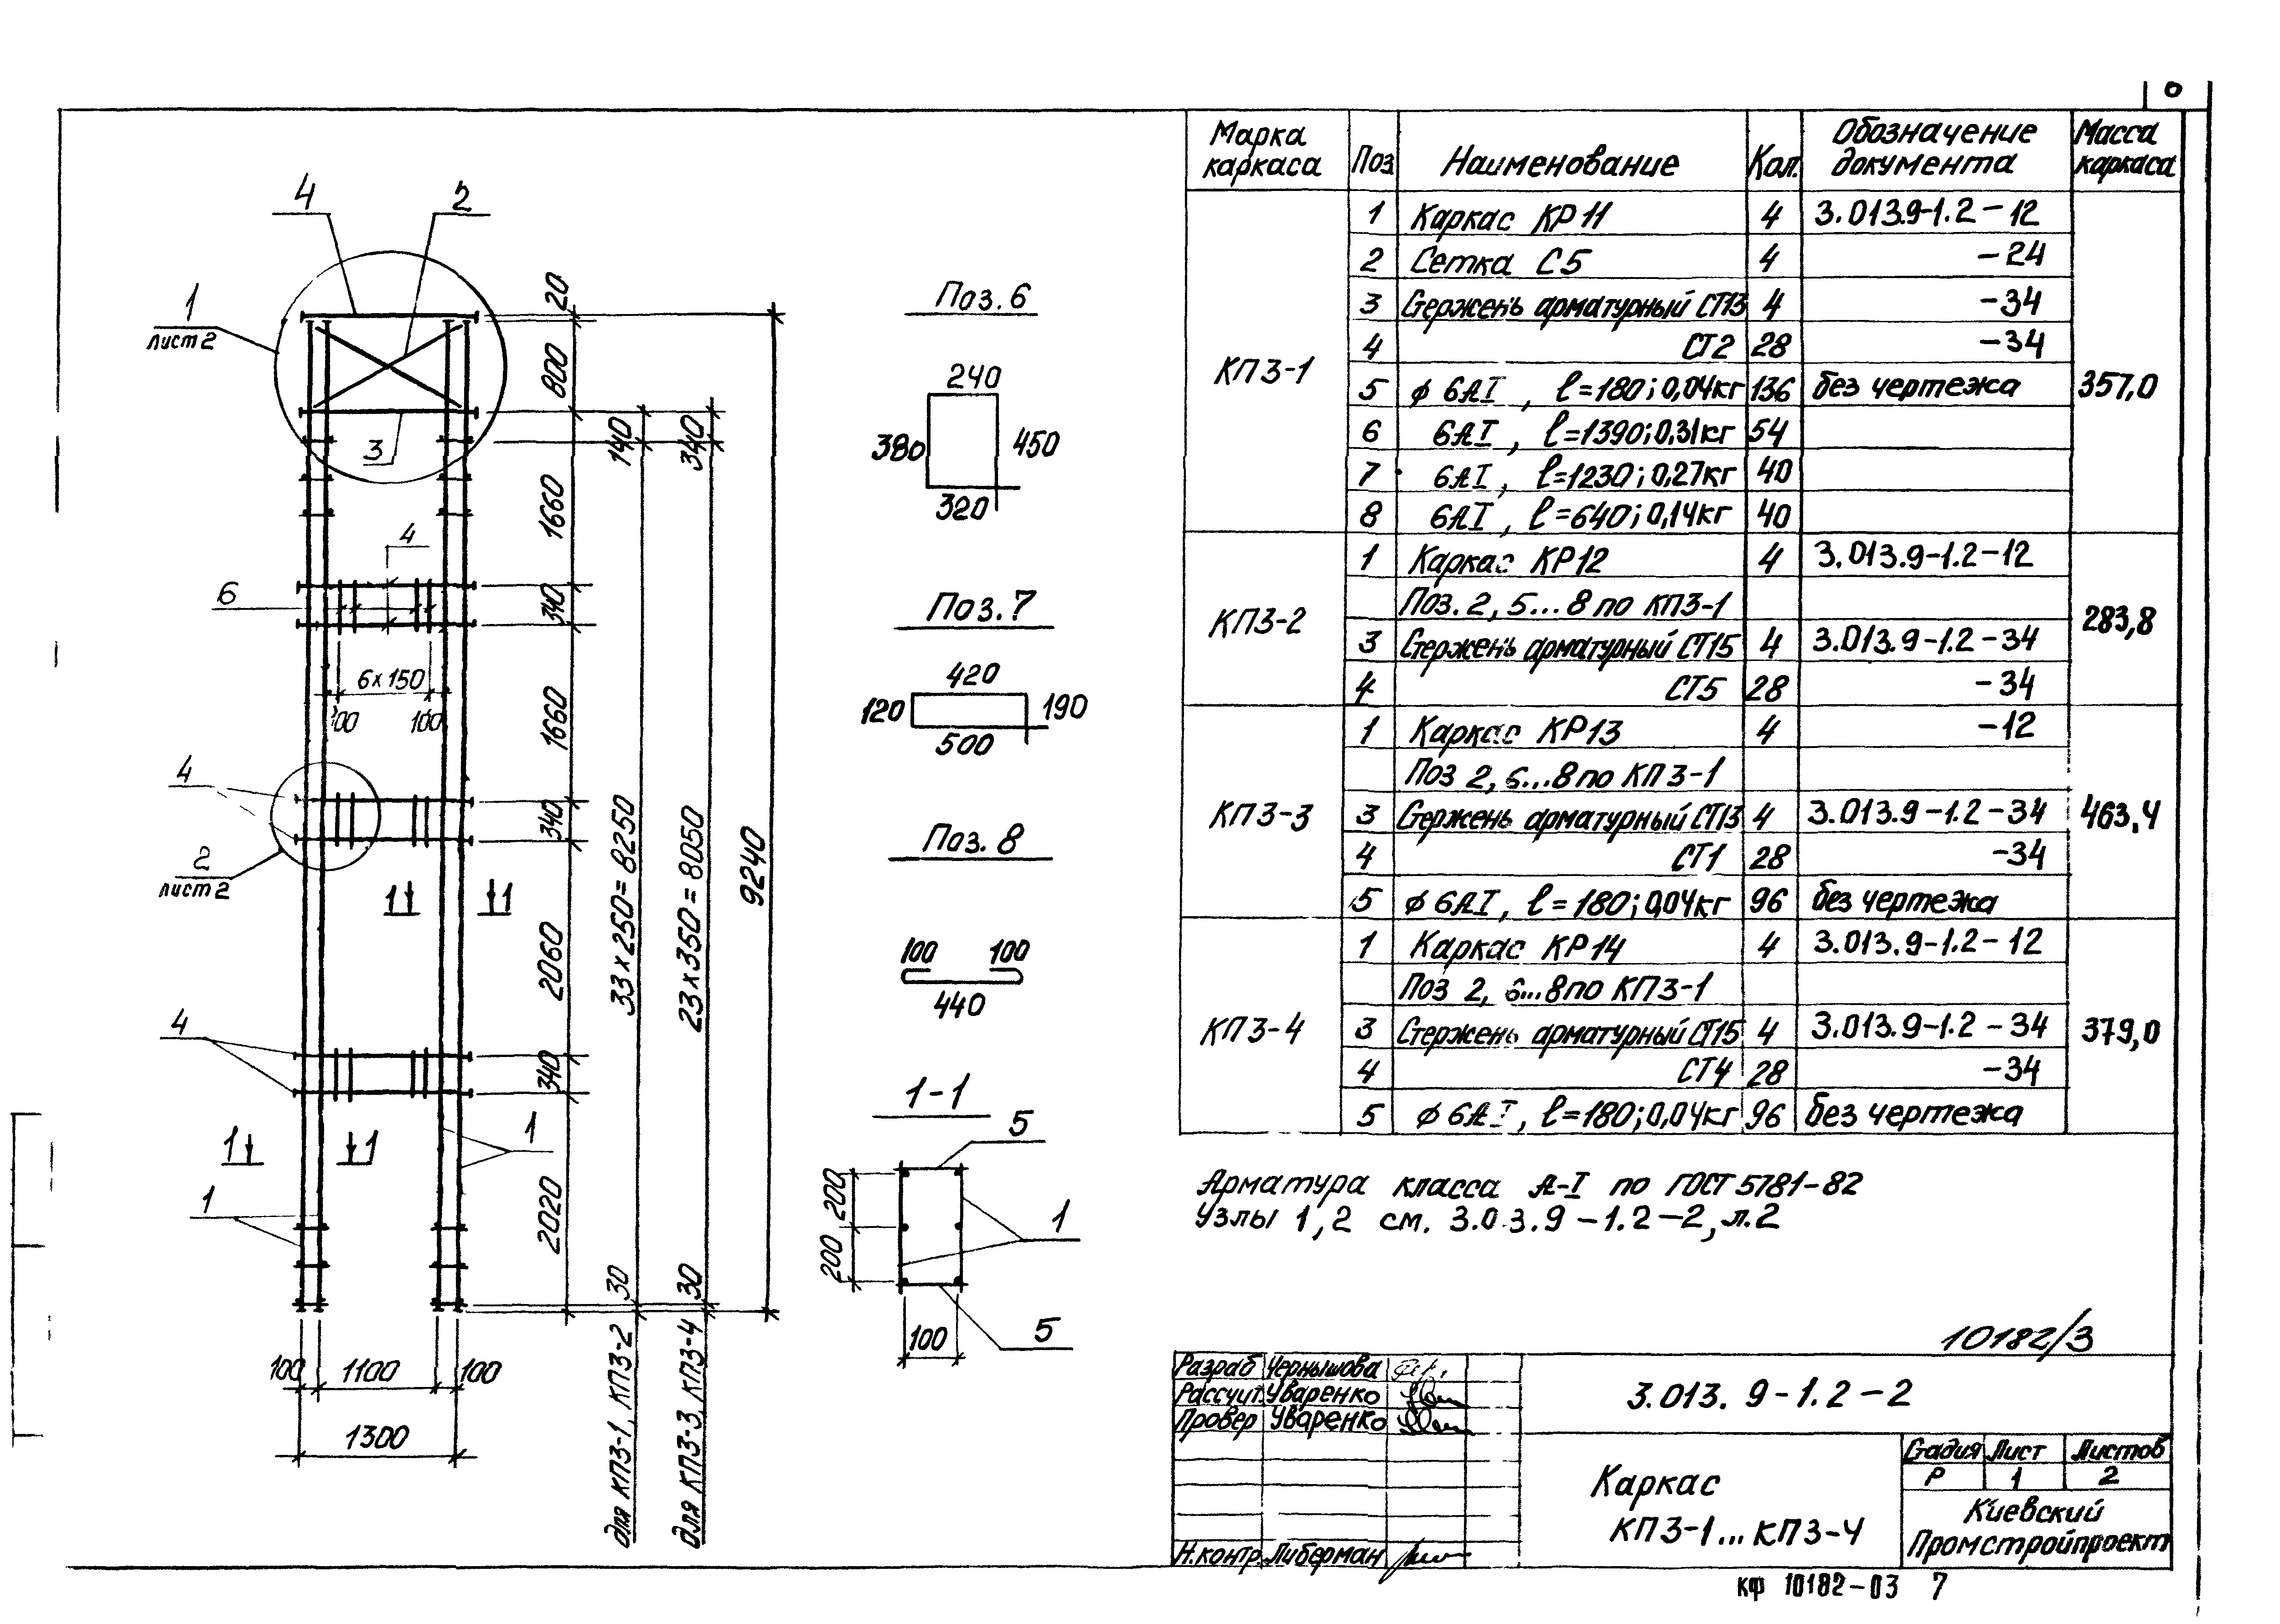 0
4
2
1
лист 2
3
4
6
6×150
100
100
4
2
лист 2
1
1
4
1
1
1
1
100
1100
100
1300
20
800
1660
340
1660
340
2060
340
2020
140
33×250=8250
30
для КП3-1, КП3-2
340
23×350=8050
30
для КП3-3, КП3-4
9240
Поз.6
240
380
450
320
Поз.7
420
120
190
500
Поз. 8
100
100
440
1-1
5
200
200
1
100
5
Марка каркаса Поз Наименование Кол. Обозначение документа Масса каркаса
КП3-1
357,0
1 Каркас КР11 4 3.013.9-1.2-12
2 Сетка С5 4 -24
3 Стержень арматурный СТ13 4 -34
4 СТ2 28 -34
5 ϕ 6АI, ℓ=180; 0,04кг 136 без чертежа
6 6АI, ℓ=1390; 0,31кг 54
7 6АI, ℓ=1230; 0,27кг 40
8 6АI, ℓ=640; 0,14кг 40
КП3-2
283,8
1 Каркас КР12 4 3.013.9-1.2-12
Поз. 2, 5...8 по КП3-1
3 Стержень арматурный СТ15 4 3.013.9-1.2-34
4 СТ5 28 -34
КП3-3
463,4
1 Каркас КР13 4 -12
Поз 2, 6...8 по КП3-1
3 Стержень арматурный СТ13 4 3.013.9-1.2-34
4 СТ1 28 -34
5 ϕ 6АI, ℓ=180; 0,04кг 96 без чертежа
КП3-4
379,0
1 Каркас КР14 4 3.013.9-1.2-12
Поз 2, 6...8 по КП3-1
3 Стержень арматурный СТ15 4 3.013.9-1.2-34
4 СТ4 28 -34
5 ϕ 6АI, ℓ=180; 0,04кг 96 без чертежа
Арматура класса А-I по ГОСТ 5781-82
Узлы 1, 2 см. 3.0 3.9-1.2-2, л.2
10182/3
Разраб Чернышова
Рассчит. Уваренко
Провер Уваренко
Н.контр. Либерман
3.013.9-1.2-2
Каркас
КП3-1...КП3-4
Стадия Лист Листов
Р 1 2
Киевский
Промстройпроект
кф 10182-03 7